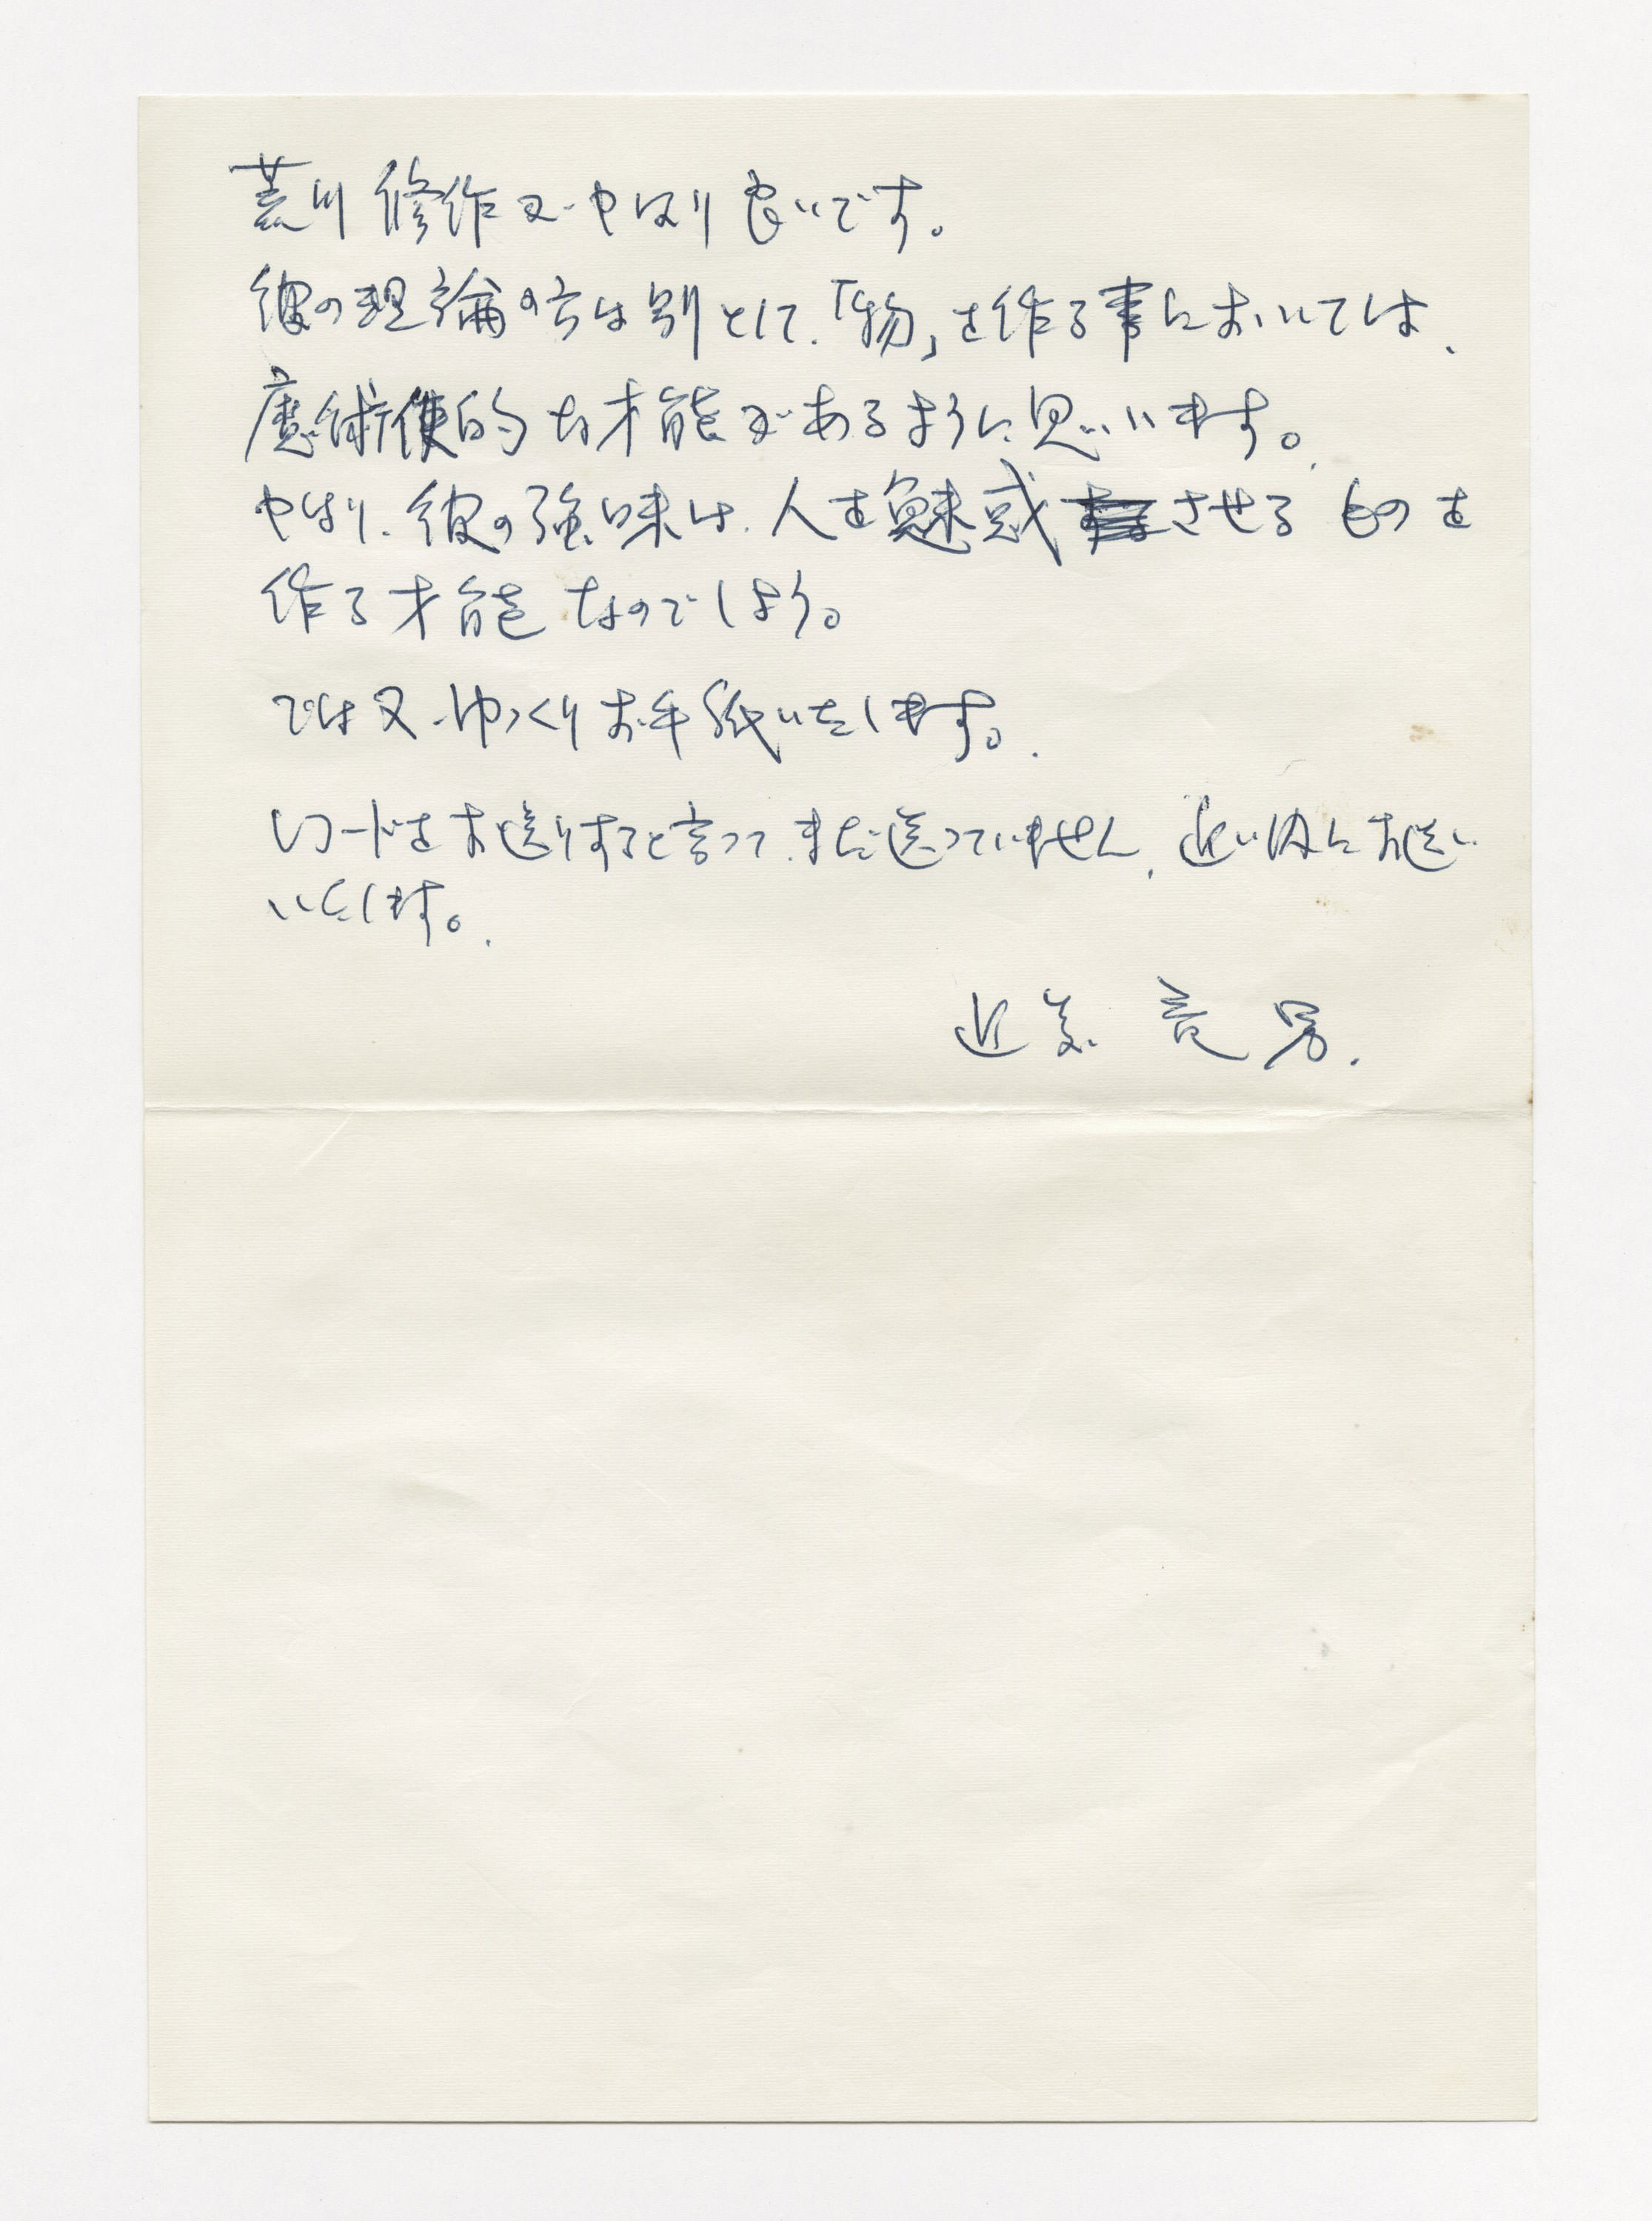 荒川修作が、やはり良いです。
彼の理論の方は別として、「物」を作る事においては、
魔術使的な才能があるように思います。
やはり、彼の強味は、人を魅惑させるものを
作る才能なのでしょう。
では又、ゆっくりお手紙いたします。
レコードをお送りすると言って、まだ送っていません、近い内にお送り
いたします。
近美